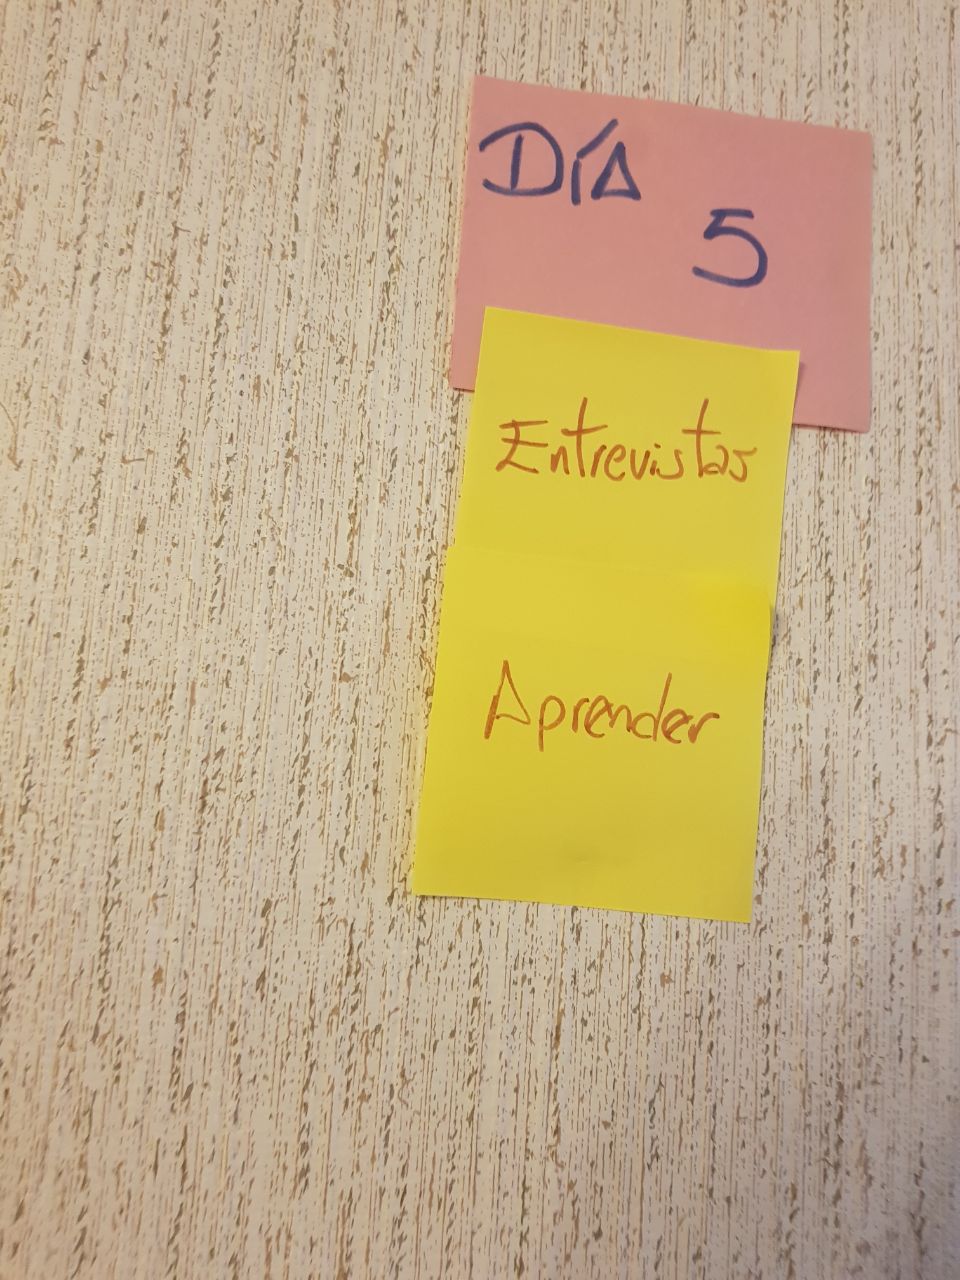 Día
5
Entrevistas
Aprender